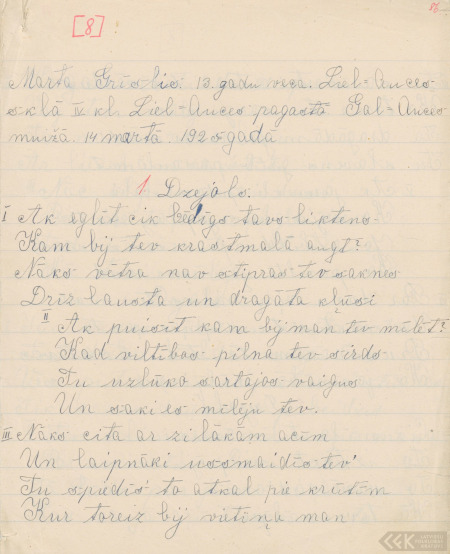 [8]
Marta Grīslis. 13. gadu veca. Liel=Auces
sklā IV kl. Liel=Auces pagastā Gal=Auces
muižā. 14 martā 1925 gadā
1. Dzejols.
I Ak eglīt cik bēdīgs tavs liktens
Kam bij tev krastmalā augt?
Nāks vētra nav stipras tev saknes
Drīz lausta un dragāta kļūsi
II Ak puisīt kam bij man tev mīlēt?
Kad viltības pilna tev sirds
Tu uzlūko sārtajos vaigus
Un saki es mīlēju tev.
III Nāks cita ar zilākām acīm
Un laipnāki uzsmaidīs tev
Tu spiedīs to atkal pie krūtīm
Kur toreiz bij vietiņa man